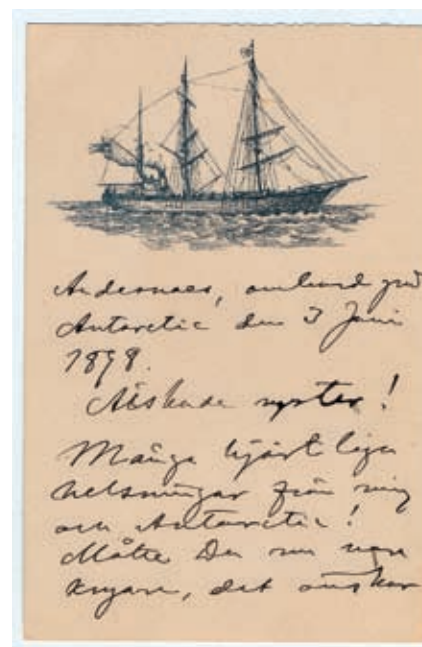 ombord på
Antarctic den 3 Juni
1898.
Älskade syster!
Många hjärtliga
helsningar från mig
och Antarctic!
Måtte Du nu vara
kryare, det önskar